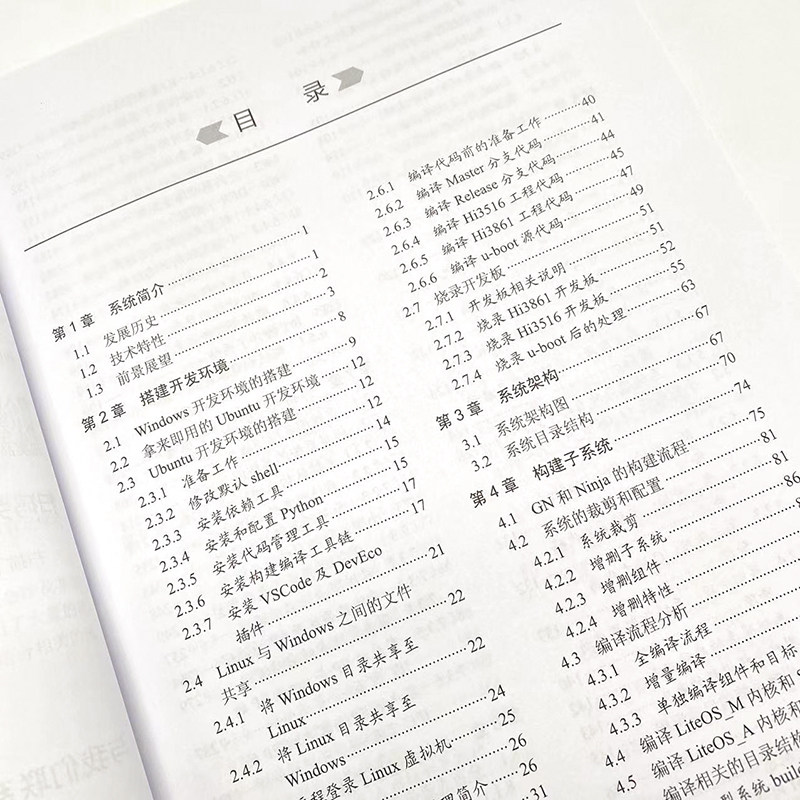 目 录
第1章 系统简介 1
1.1 发展历史 1
1.2 技术特性 2
1.3 前景展望 3
第2章 搭建开发环境 8
2.1 Windows 开发环境的搭建 9
2.2 拿来即用的 Ubuntu 开发环境 12
2.3 Ubuntu 开发环境的搭建 12
2.3.1 准备工作 12
2.3.2 修改默认 shell 14
2.3.3 安装依赖工具 15
2.3.4 安装和配置 Python 15
2.3.5 安装代码管理工具 17
2.3.6 安装构建编译工具链 17
2.3.7 安装 VSCode 及 DevEco
插件 21
2.4 Linux 与 Windows 之间的文件
共享 22
2.4.1 将 Windows 目录共享至
Linux 22
2.4.2 将 Linux 目录共享至
Windows 24
程登录 Linux 虚拟机 25
理简介 26
31
2.6.1 编译代码前的准备工作 40
2.6.2 编译 Master 分支代码 41
2.6.3 编译 Release 分支代码 44
2.6.4 编译 Hi3516 工程代码 45
2.6.5 编译 Hi3861 工程代码 47
2.6.6 编译 u-boot 源代码 49
2.7 烧录开发板 51
2.7.1 开发板相关说明 51
2.7.2 烧录 Hi3861 开发板 52
2.7.3 烧录 Hi3516 开发板 55
2.7.4 烧录 u-boot 后的处理 63
第3章 系统架构 67
3.1 系统架构图 67
3.2 系统目录结构 70
第4章 构建子系统 74
4.1 GN 和 Ninja 的构建流程 75
4.2 系统的裁剪和配置 81
4.2.1 系统裁剪 81
4.2.2 增删子系统 86
4.2.3 增删组件
4.2.4 增删特性
4.3 编译流程分析
4.3.1 全编译流程
4.3.2 增量编译
4.3.3 单独编译组件和目标
4.4 编译 LiteOS_M 内核和
4.5 编译 LiteOS_A 内核和
编译相关的目录结构
型系统 buil